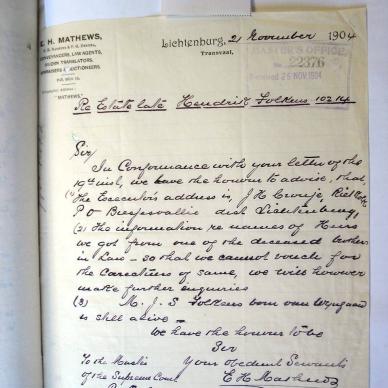 E. H. MATHEWS,
CONVEYANCERS, LAW AGENTS,
SWORN TRANSLATORS,
APPRAISERS & AUCTIONEERS.
"MATHEWS."
Lichtenburg, 21 November 1904
Transvaal,
MASTER'S OFFICE
No. 22376
Received 25 NOV. 1904
Re Estate late Hendrik Folkens 10214
Sir
In Conformance with your letter of the
19th inst, we have the honour to advise, that,
(1) The Executors address is, J H Cronje,
P O dist Lichtenburg,
(2) The information re names of Heirs
we got from one of the deceased brothers
in Law - so that we cannot vouch for
the Correctness of same, we will however
make further enquiries
(3) M. J. S Folkens born
is still alive -
We have the honour to be
Sir
To the Master Your obedient Servants
of the Supreme Court E H Mathews